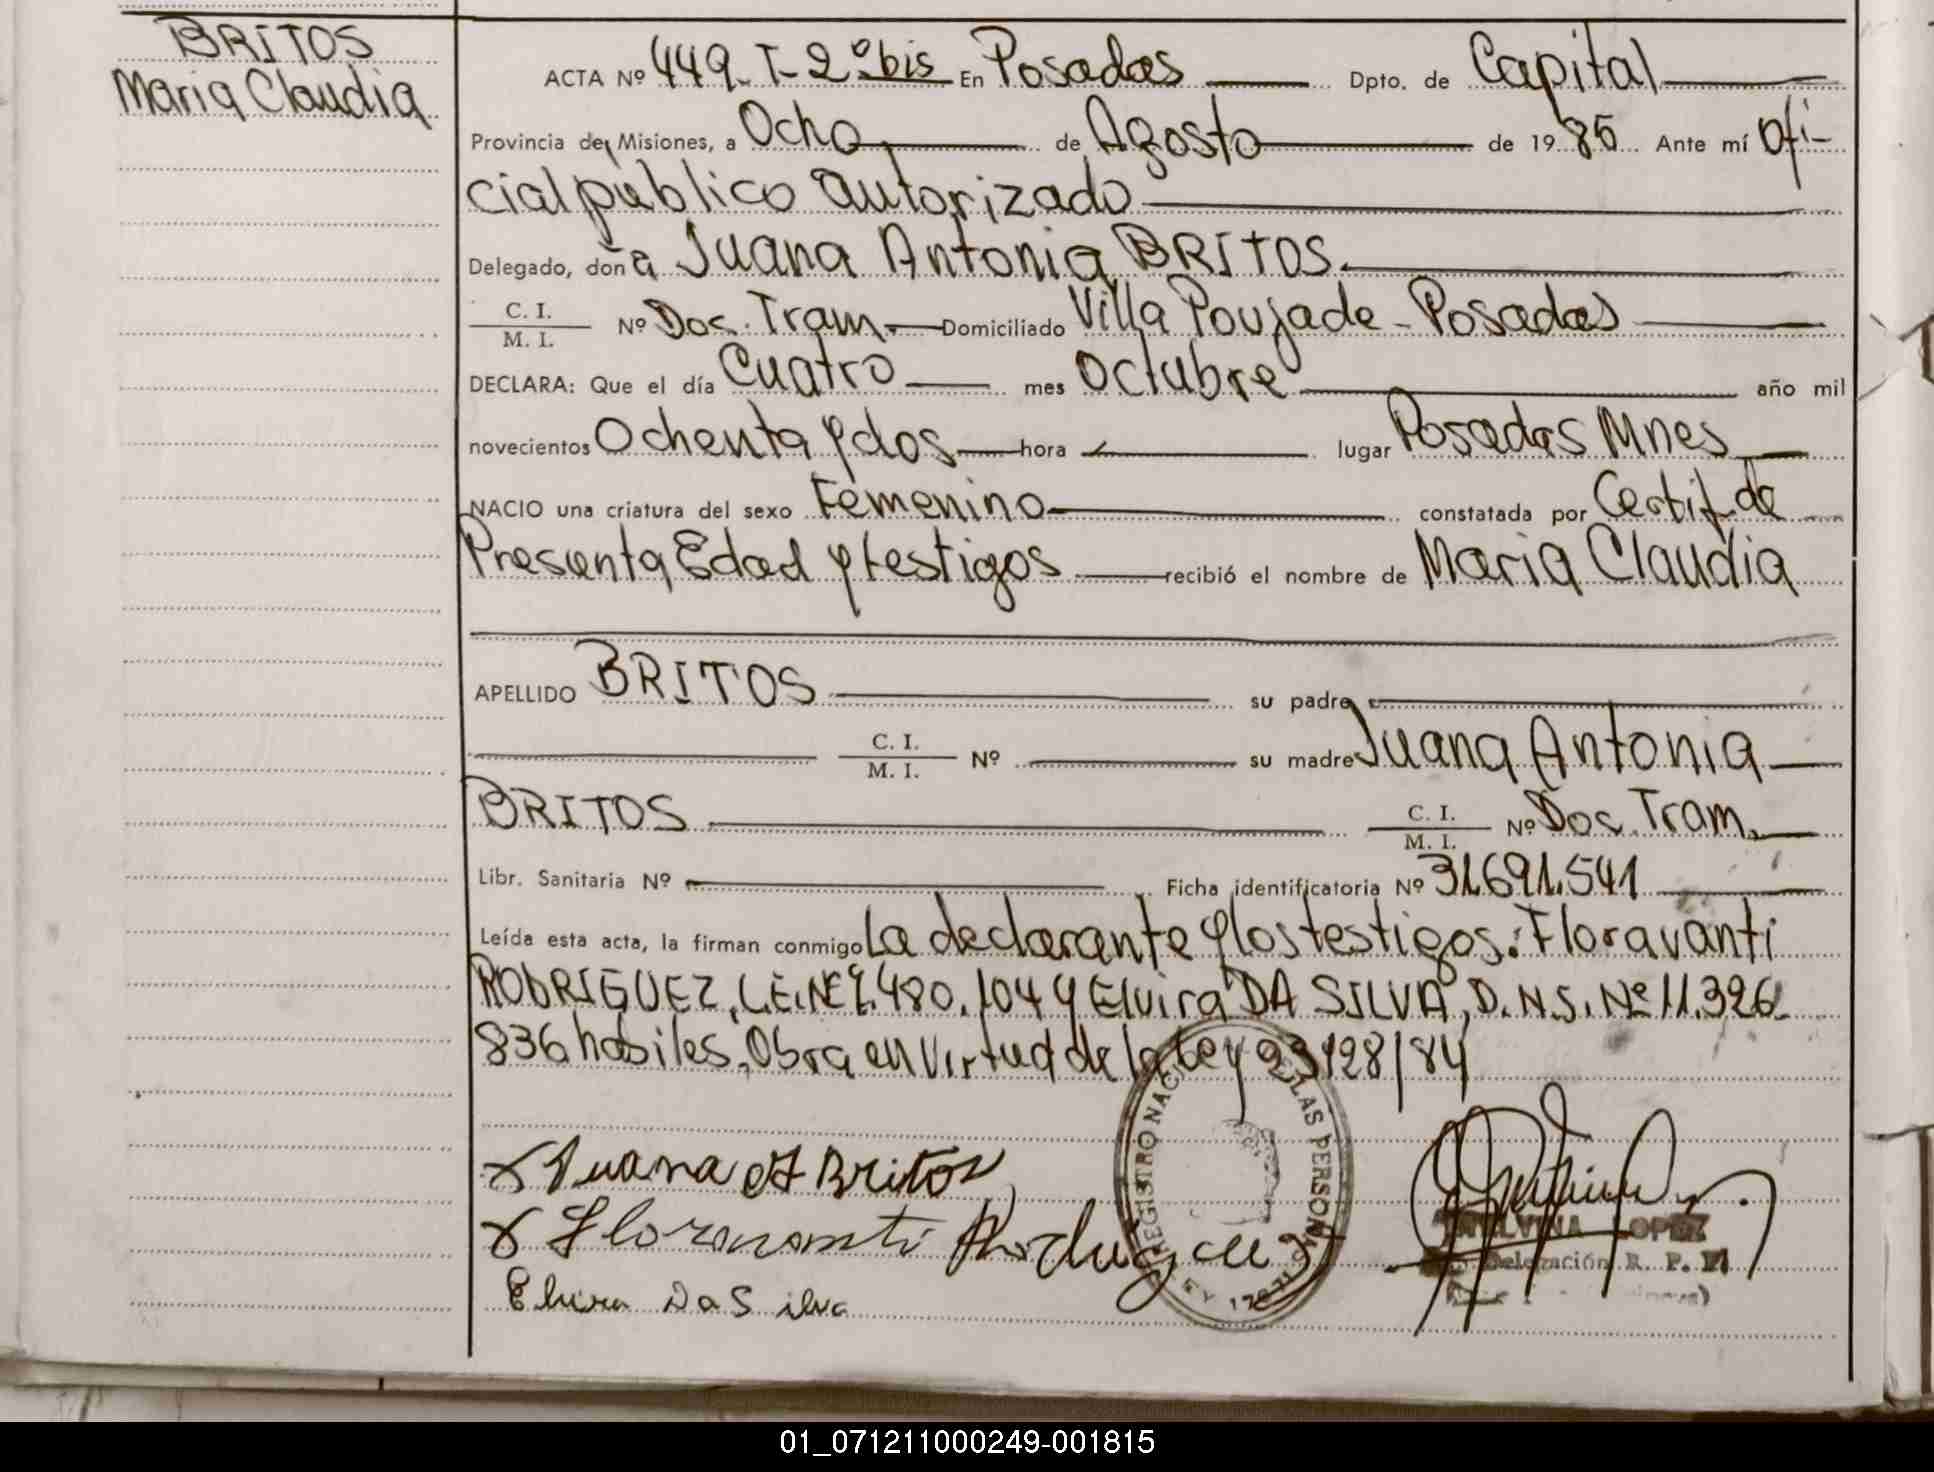 BRITOS
Maria Claudia
ACTA Nº 449-T-2º bis En Posadas Dpto. de Capital
Provincia de Misiones, a Ocho de Agosto de 1985 Ante mí Ofi-
cial público autorizado
Delegado, doña Juana Antonia BRITOS.
C. I.
M. I.
Nº Doc. Tram. Domiciliado Villa Poujade - Posadas
DECLARA: Que el día Cuatro mes Octubre año mil
novecientos Ochenta y dos hora lugar Posadas Mnes
NACIO una criatura del sexo Femenino constatada por Certif. de
Presunta Edad y testigos recibió el nombre de Maria Claudia
APELLIDO BRITOS su padre
C. I.
M. I.
Nº su madre Juana Antonia
BRITOS
C. I.
M. I.
Nº Doc. Tram.
Libr. Sanitaria Nº Ficha identificatoria Nº 31.691.541
Leída esta acta, la firman conmigo La declarante y los testigos: Floravanti
RODRIGUEZ, L.E. Nº 480.104 y Elvira DA SILVA, D.N.I. Nº 11.326.
836 habiles. Obra en Virtud de la Ley 23128/84
Juana A Britos
Floravanti Rodriguez
Elvira Da Silva
REGISTRO NAC LAS PERSONAS
LOPEZ
Delegación R. P.
01_071211000249-001815